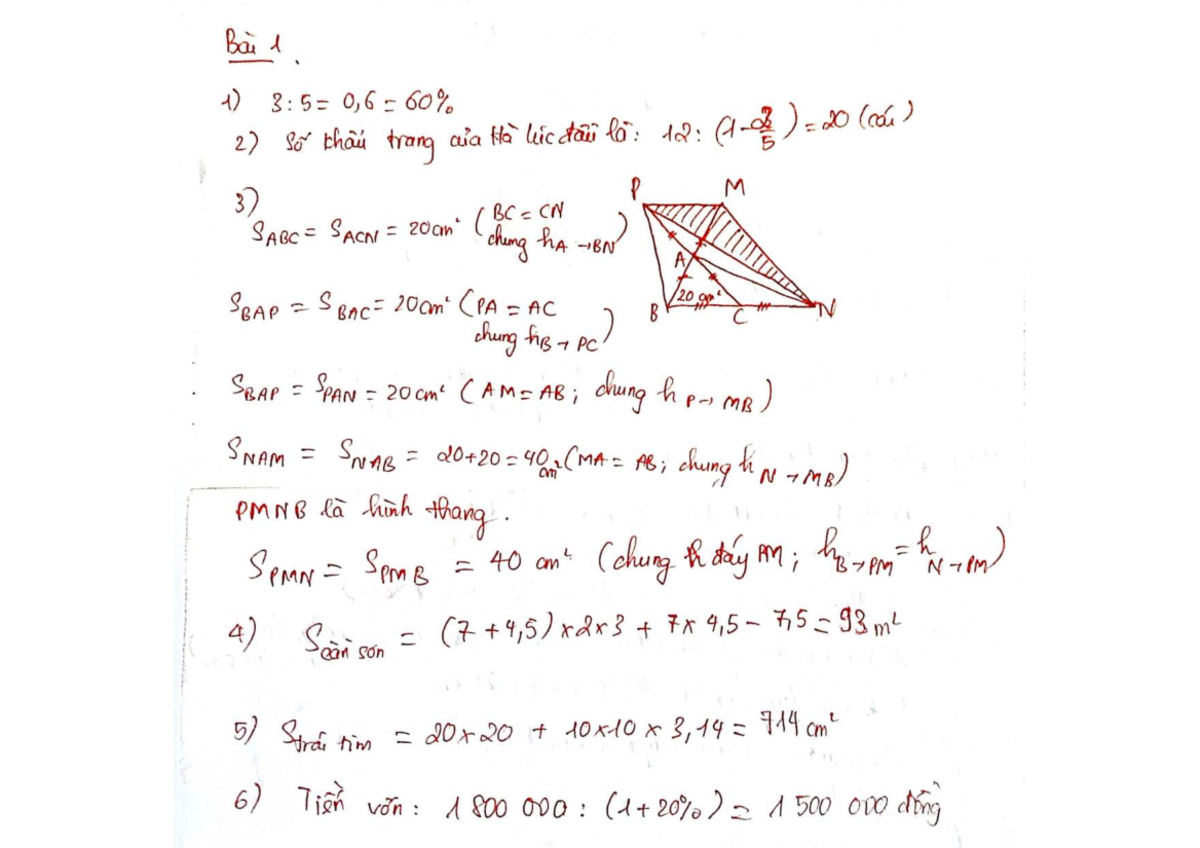 Bài 1.
1) 3:5 = 0,6 = 60%
2) Số khẩu trang của Hà lúc đầu là: 12: (1-2/5) = 20 (cái)
3)
P M
S_ABC = S_ACN = 20cm² (BC = CN
chung h_A→BN)
A
20 cm²
B C N
S_BAP = S_BAC = 20cm² (PA = AC
chung h_B→PC)
S_BAP = S_PAN = 20cm² (AM = AB; chung h_P→MB)
S_NAM = S_NAB = 20+20 = 40cm² (MA = AB; chung h_N→MB)
PMNB là hình thang.
S_PMN = S_PMB = 40 cm² (chung đáy PM; h_B→PM = h_N→PM)
4) S_cần sơn = (7 + 4,5) x 2 x 3 + 7 x 4,5 - 7,5 = 93 m²
5) S_trái tim = 20 x 20 + 10 x 10 x 3,14 = 714 cm²
6) Tiền vốn: 1 800 000 : (1+20%) = 1 500 000 đồng